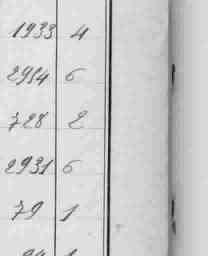 1933 4
2954 6
728 2
2931 6
79 1